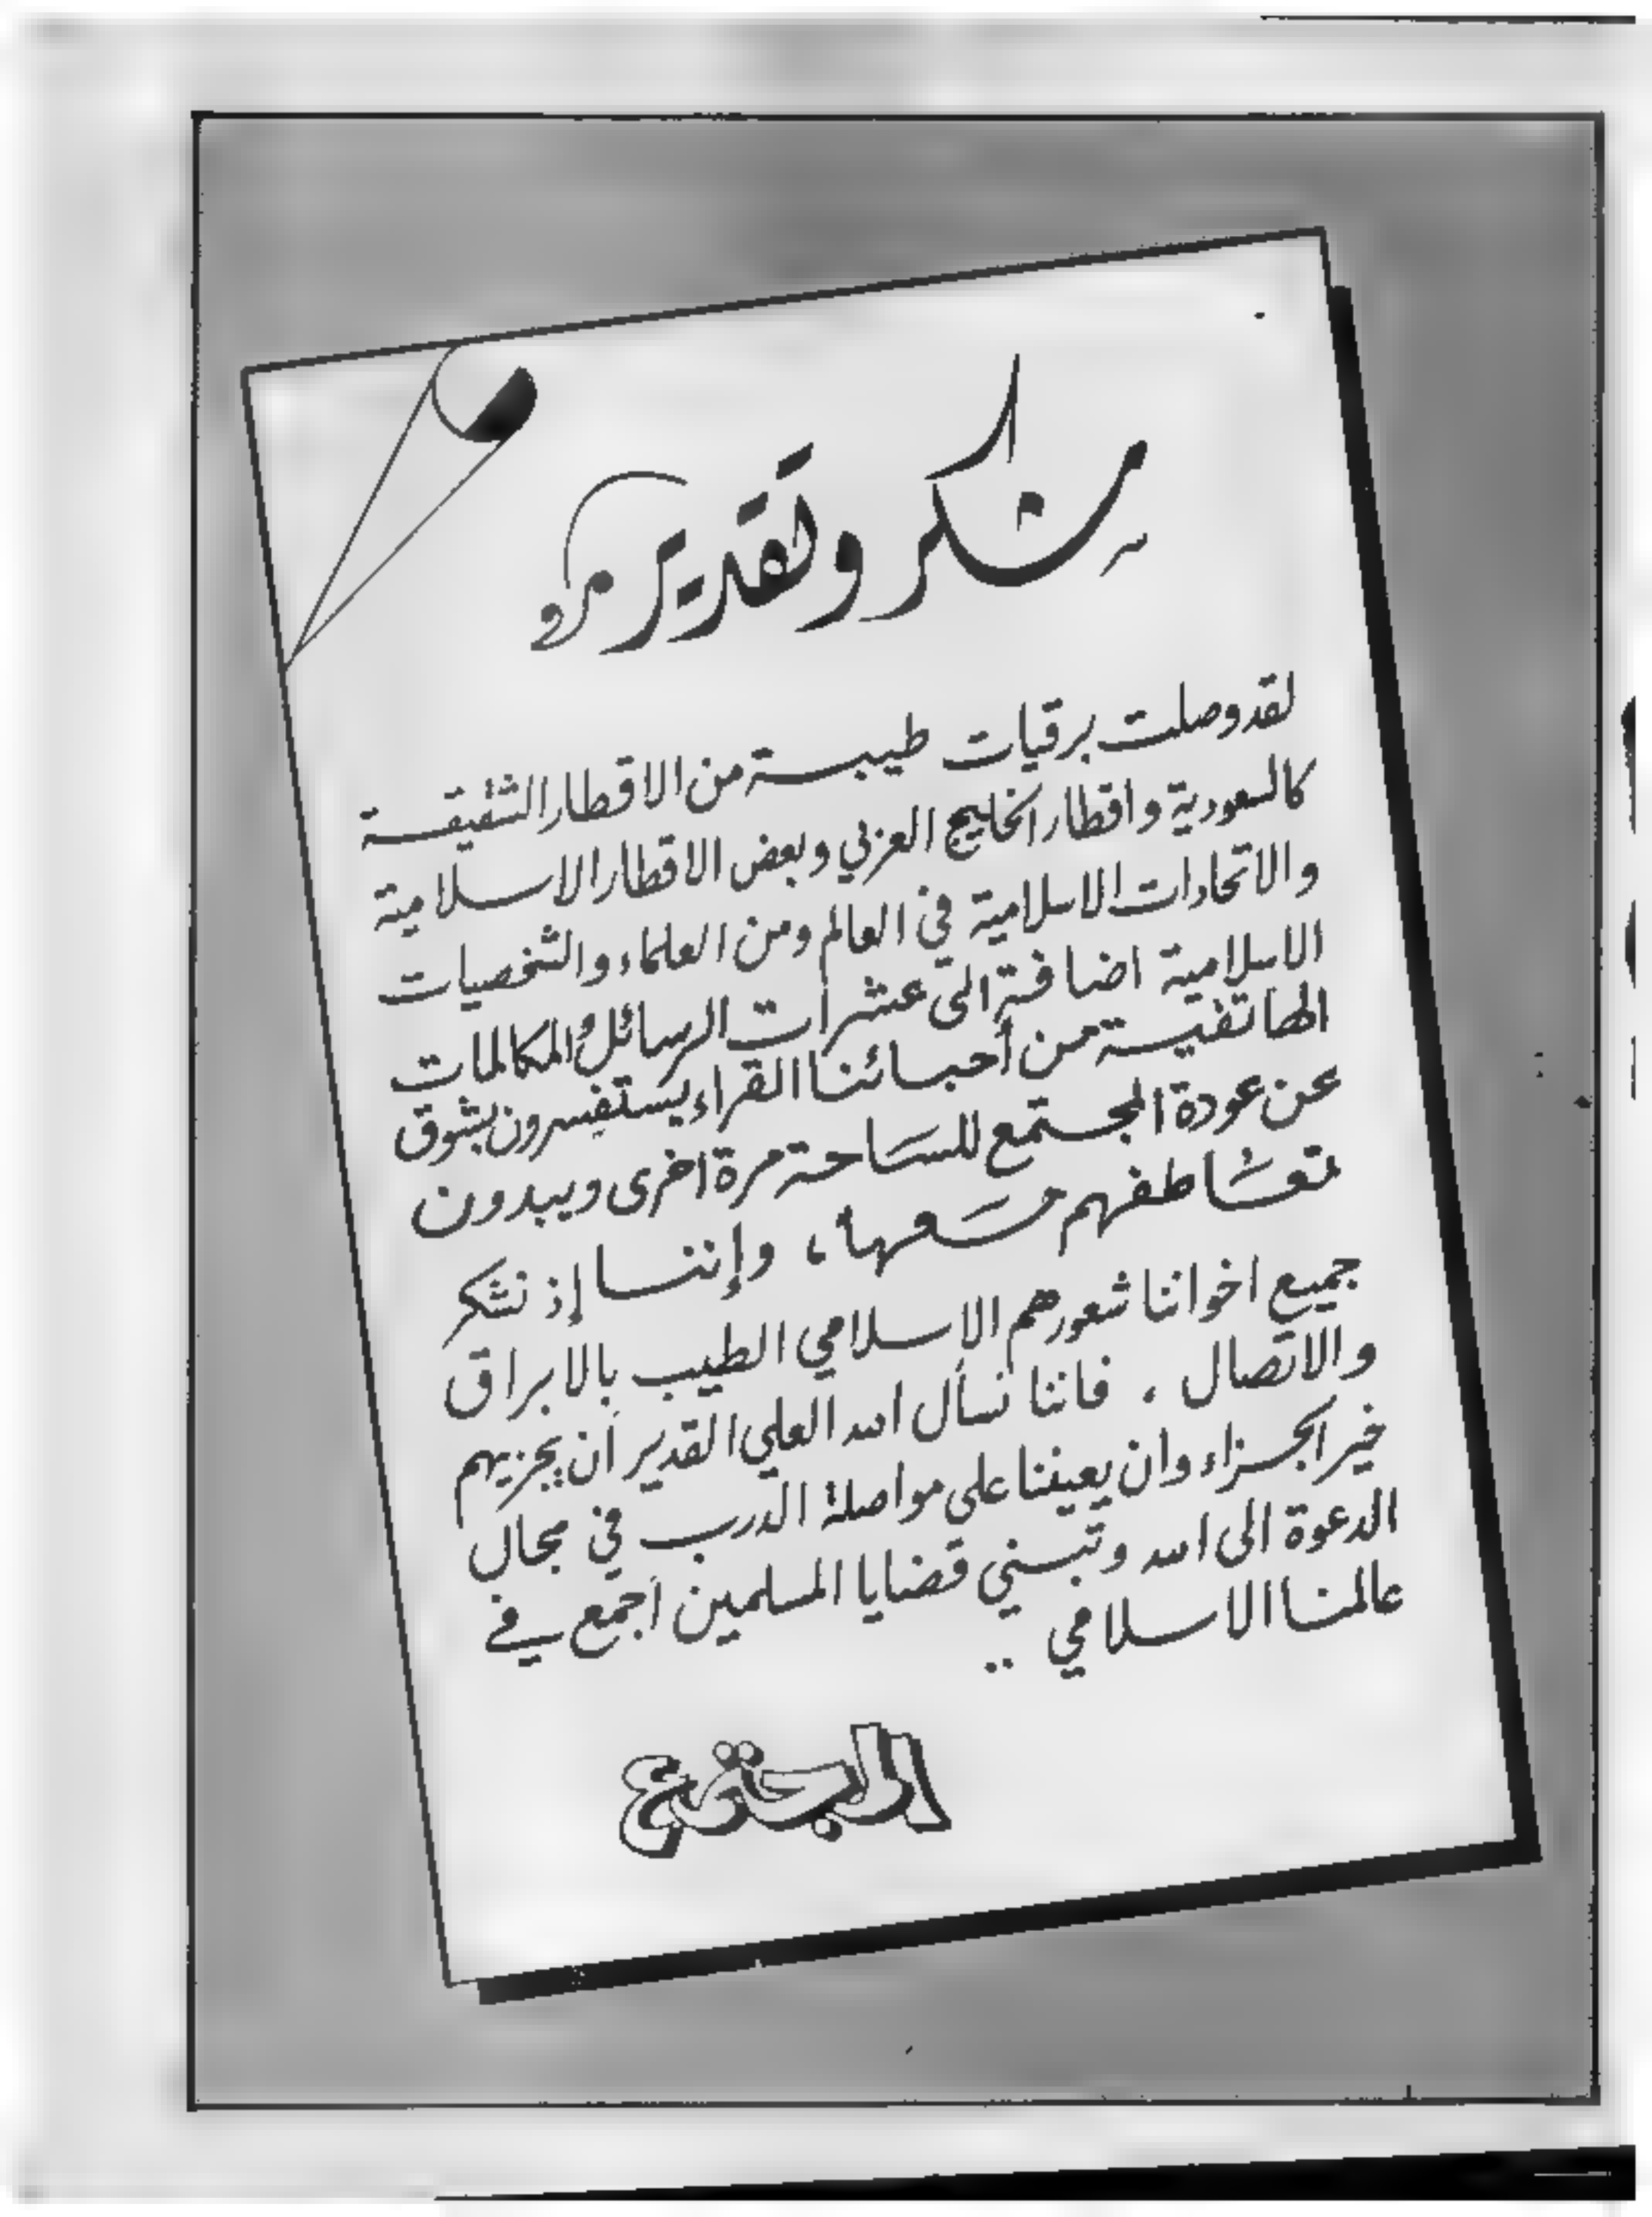 شكر وتقدير
لقد وصلت برقيات طيبة من الاقطار الشقيقة
كالسعودية واقطار الخليج العربي وبعض الاقطار الاسلامية
والاتحادات الاسلامية في العالم ومن العلماء والشخصيات
الاسلامية اضافة الى عشرات الرسائل والمكالمات
الهاتفية من أحبائنا القراء يستفسرون بشوق
عن عودة المجتمع للساحة مرة اخرى ويبدون
تعاطفهم معها، وإننا إذ نشكر
جميع اخواننا شعورهم الاسلامي الطيب بالابراق
والاتصال . فاننا نسأل الله العلي القدير أن يجزيهم
خير الجزاء وان يعيننا على مواصلة الدرب في مجال
الدعوة الى الله وتبني قضايا المسلمين أجمع في
عالمنا الاسلامي ..
المجتمع